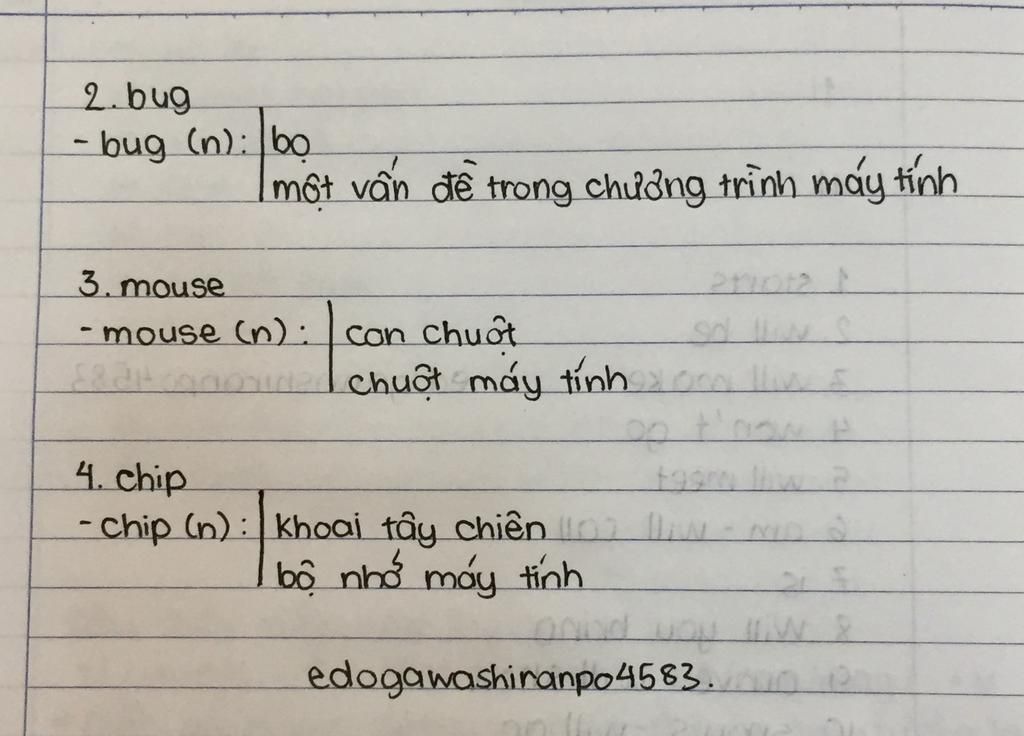 2. bug
- bug (n): bọ
một vấn đề trong chương trình máy tính
3. mouse
- mouse (n): con chuột
chuột máy tính
4. chip
- chip (n): khoai tây chiên
bộ nhớ máy tính
edogawashiranpo4583.